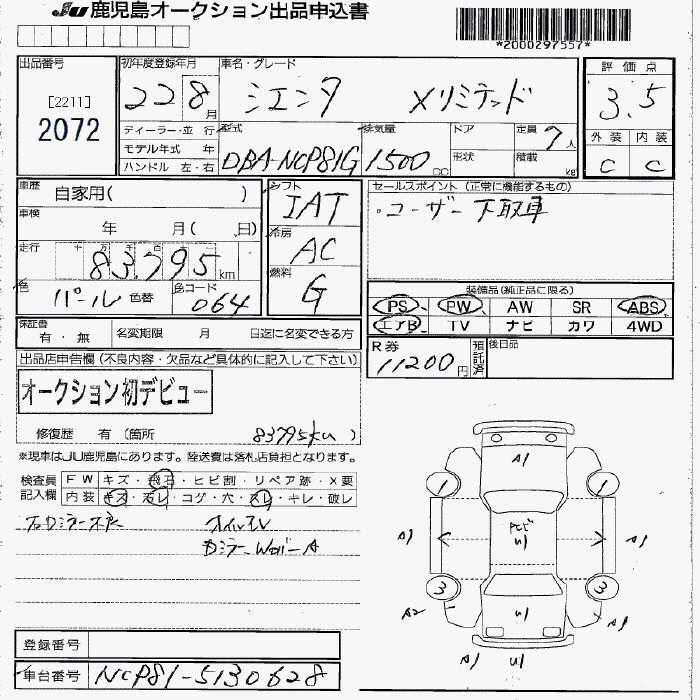 JU 鹿児島オークション出品申込書
*2000297557*
出品番号
[2211]
2072
初年度登録年月
22 8月
車名・グレード
シエンタ Xリミテッド
評価点
3.5
外装 内装
C C
ディーラー・並行
モデル年式 年
ハンドル 左・右
型式
DBA-NCP81G
排気量
1500 CC
ドア
形状
定員 7人
積載 kg
車歴 自家用( )
車検 年 月( 日)
走行 十 万 千 百 十 一
83,795 km
色 パール 色替
色コード 064
シフト IAT
冷房 AC
燃料 G
セールスポイント(正常に機能するもの)
・ユーザー下取車
装備品(純正品に限る)
PS PW AW SR ABS
エアB TV ナビ カワ 4WD
保証書 有・無
名変期限 月 日迄に名変できる方
R券 11200円
預託済
後日品
出品店申告欄(不良内容・欠品など具体的に記入して下さい)
オークション初デビュー
修復歴 有(箇所 83795km )
※現車はJU鹿児島にあります。陸送費は落札店負担となります。
検査員記入欄
FW キズ・飛石・ヒビ割・リペア跡・X要
内装 キズ・汚レ・コゲ・穴・スレ・キレ・破レ
オイルモレ
A1
1 1
U1
A1 A1
3 3
A2 U1 A1
A1 U1
登録番号
車台番号 NCP81-5130628